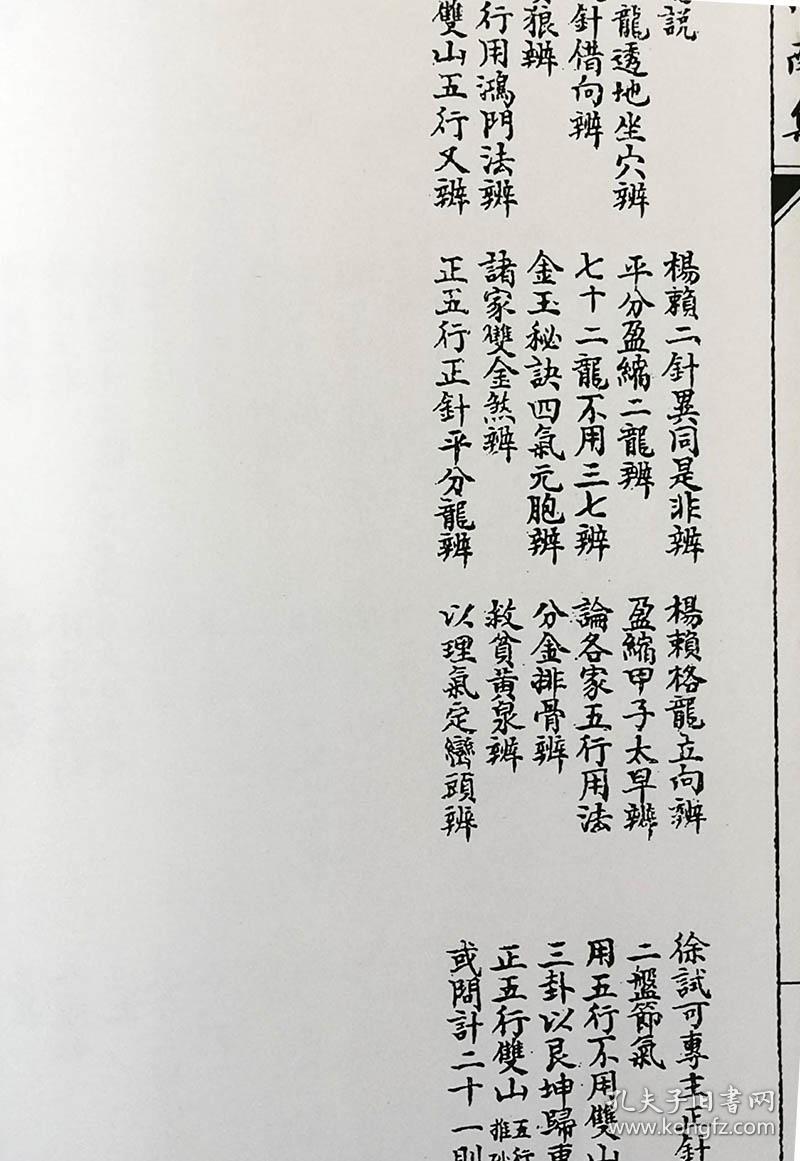 集
說
楊賴二針異同是非辨
楊賴格龍立向辨
徐試可專主正針
龍透地坐穴辨
平分盈縮二龍辨
盈縮甲子太早辨
二盤節氣
針借向辨
七十二龍不用三七辨
論各家五行用法
用五行不用雙山
狼辨
金玉秘訣四氣元胞辨
分金排骨辨
三卦以艮坤歸
行用鴻門法辨
諸家雙金煞辨
救貧黃泉辨
正五行雙山 五行
推
雙山五行又辨
正五行正針平分龍辨
以理氣定巒頭辨
或問計二十一則
孔夫子旧书网
www.kongfz.com